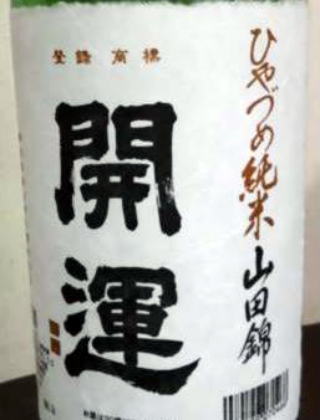 登録商標
開運
ひやづめ純米山田錦